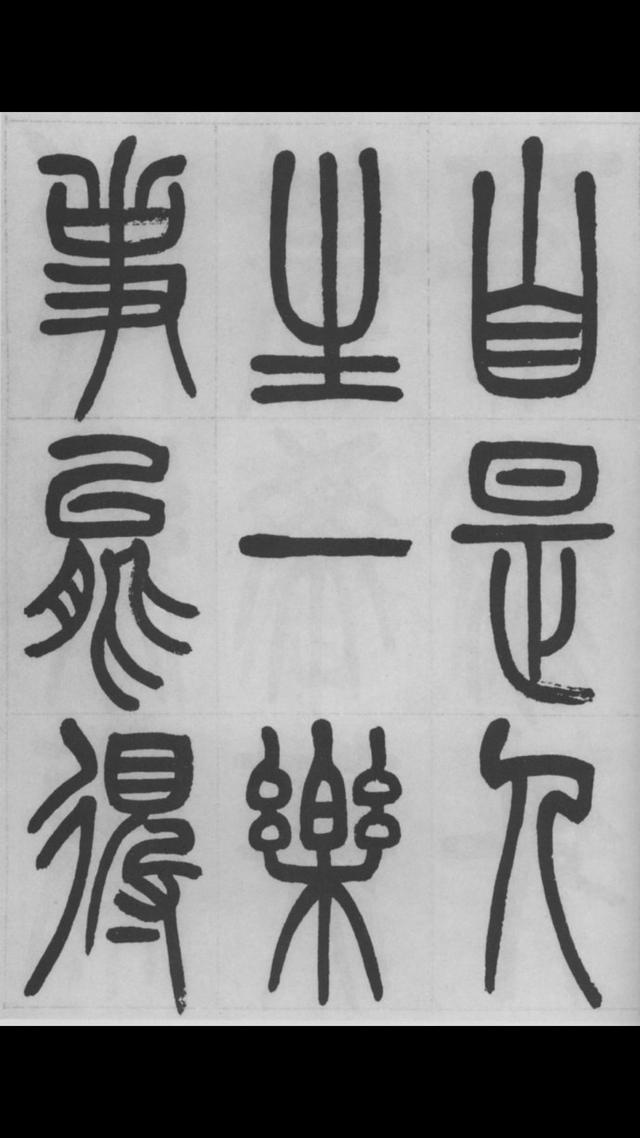 自是人
生一樂
事能得